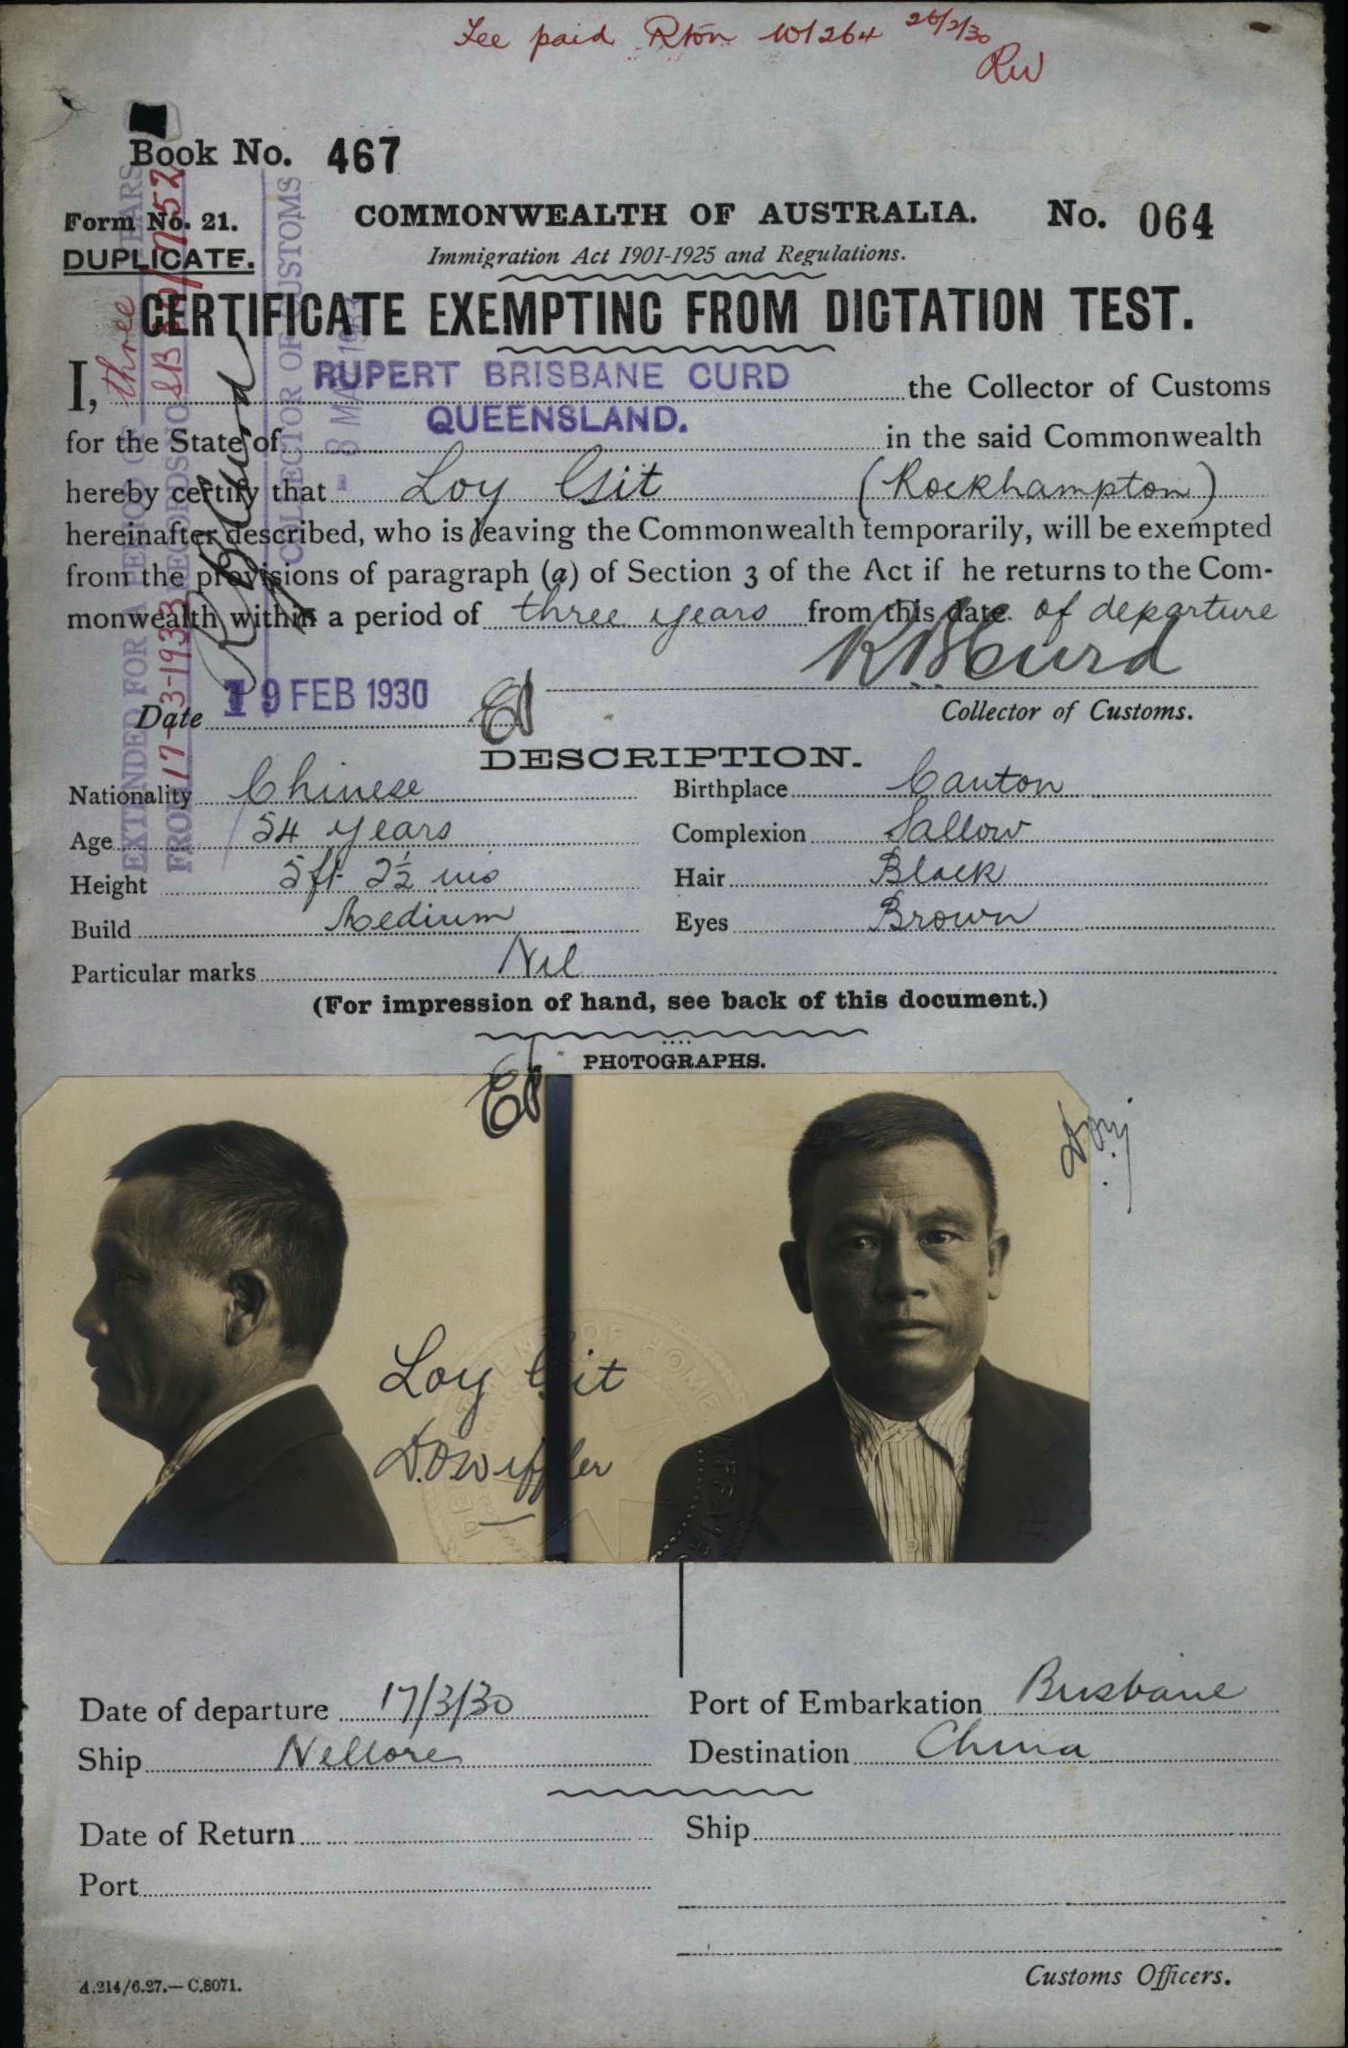 Fee paid Rton W1264 26/2/30
RW
Book No. 467
Form No. 21.
COMMONWEALTH OF AUSTRALIA.
No. 064
DUPLICATE.
Immigration Act 1901-1925 and Regulations.
CERTIFICATE EXEMPTING FROM DICTATION TEST.
I, RUPERT BRISBANE CURD the Collector of Customs
for the State of QUEENSLAND. in the said Commonwealth
hereby certify that Loy Git (Rockhampton)
hereinafter described, who is leaving the Commonwealth temporarily, will be exempted
from the provisions of paragraph (a) of Section 3 of the Act if he returns to the Com-
monwealth within a period of three years from this date of departure
R B Curd
Date 19 FEB 1930
Collector of Customs.
EXTENDED FOR A PERIOD OF three YEARS
FROM 17-3-1933 RECORDS NO
R B Curd
COLLECTOR OF CUSTOMS
DESCRIPTION.
Nationality Chinese Birthplace Canton
Age 54 years Complexion Sallow
Height 5 ft 2½ ins Hair Black
Build Medium Eyes Brown
Particular marks Nil
(For impression of hand, see back of this document.)
PHOTOGRAPHS.
Loy Git
Date of departure 17/3/30 Port of Embarkation Brisbane
Ship Nellore Destination China
Date of Return Ship
Port
Customs Officers.
A.214/6.27.—C.8071.